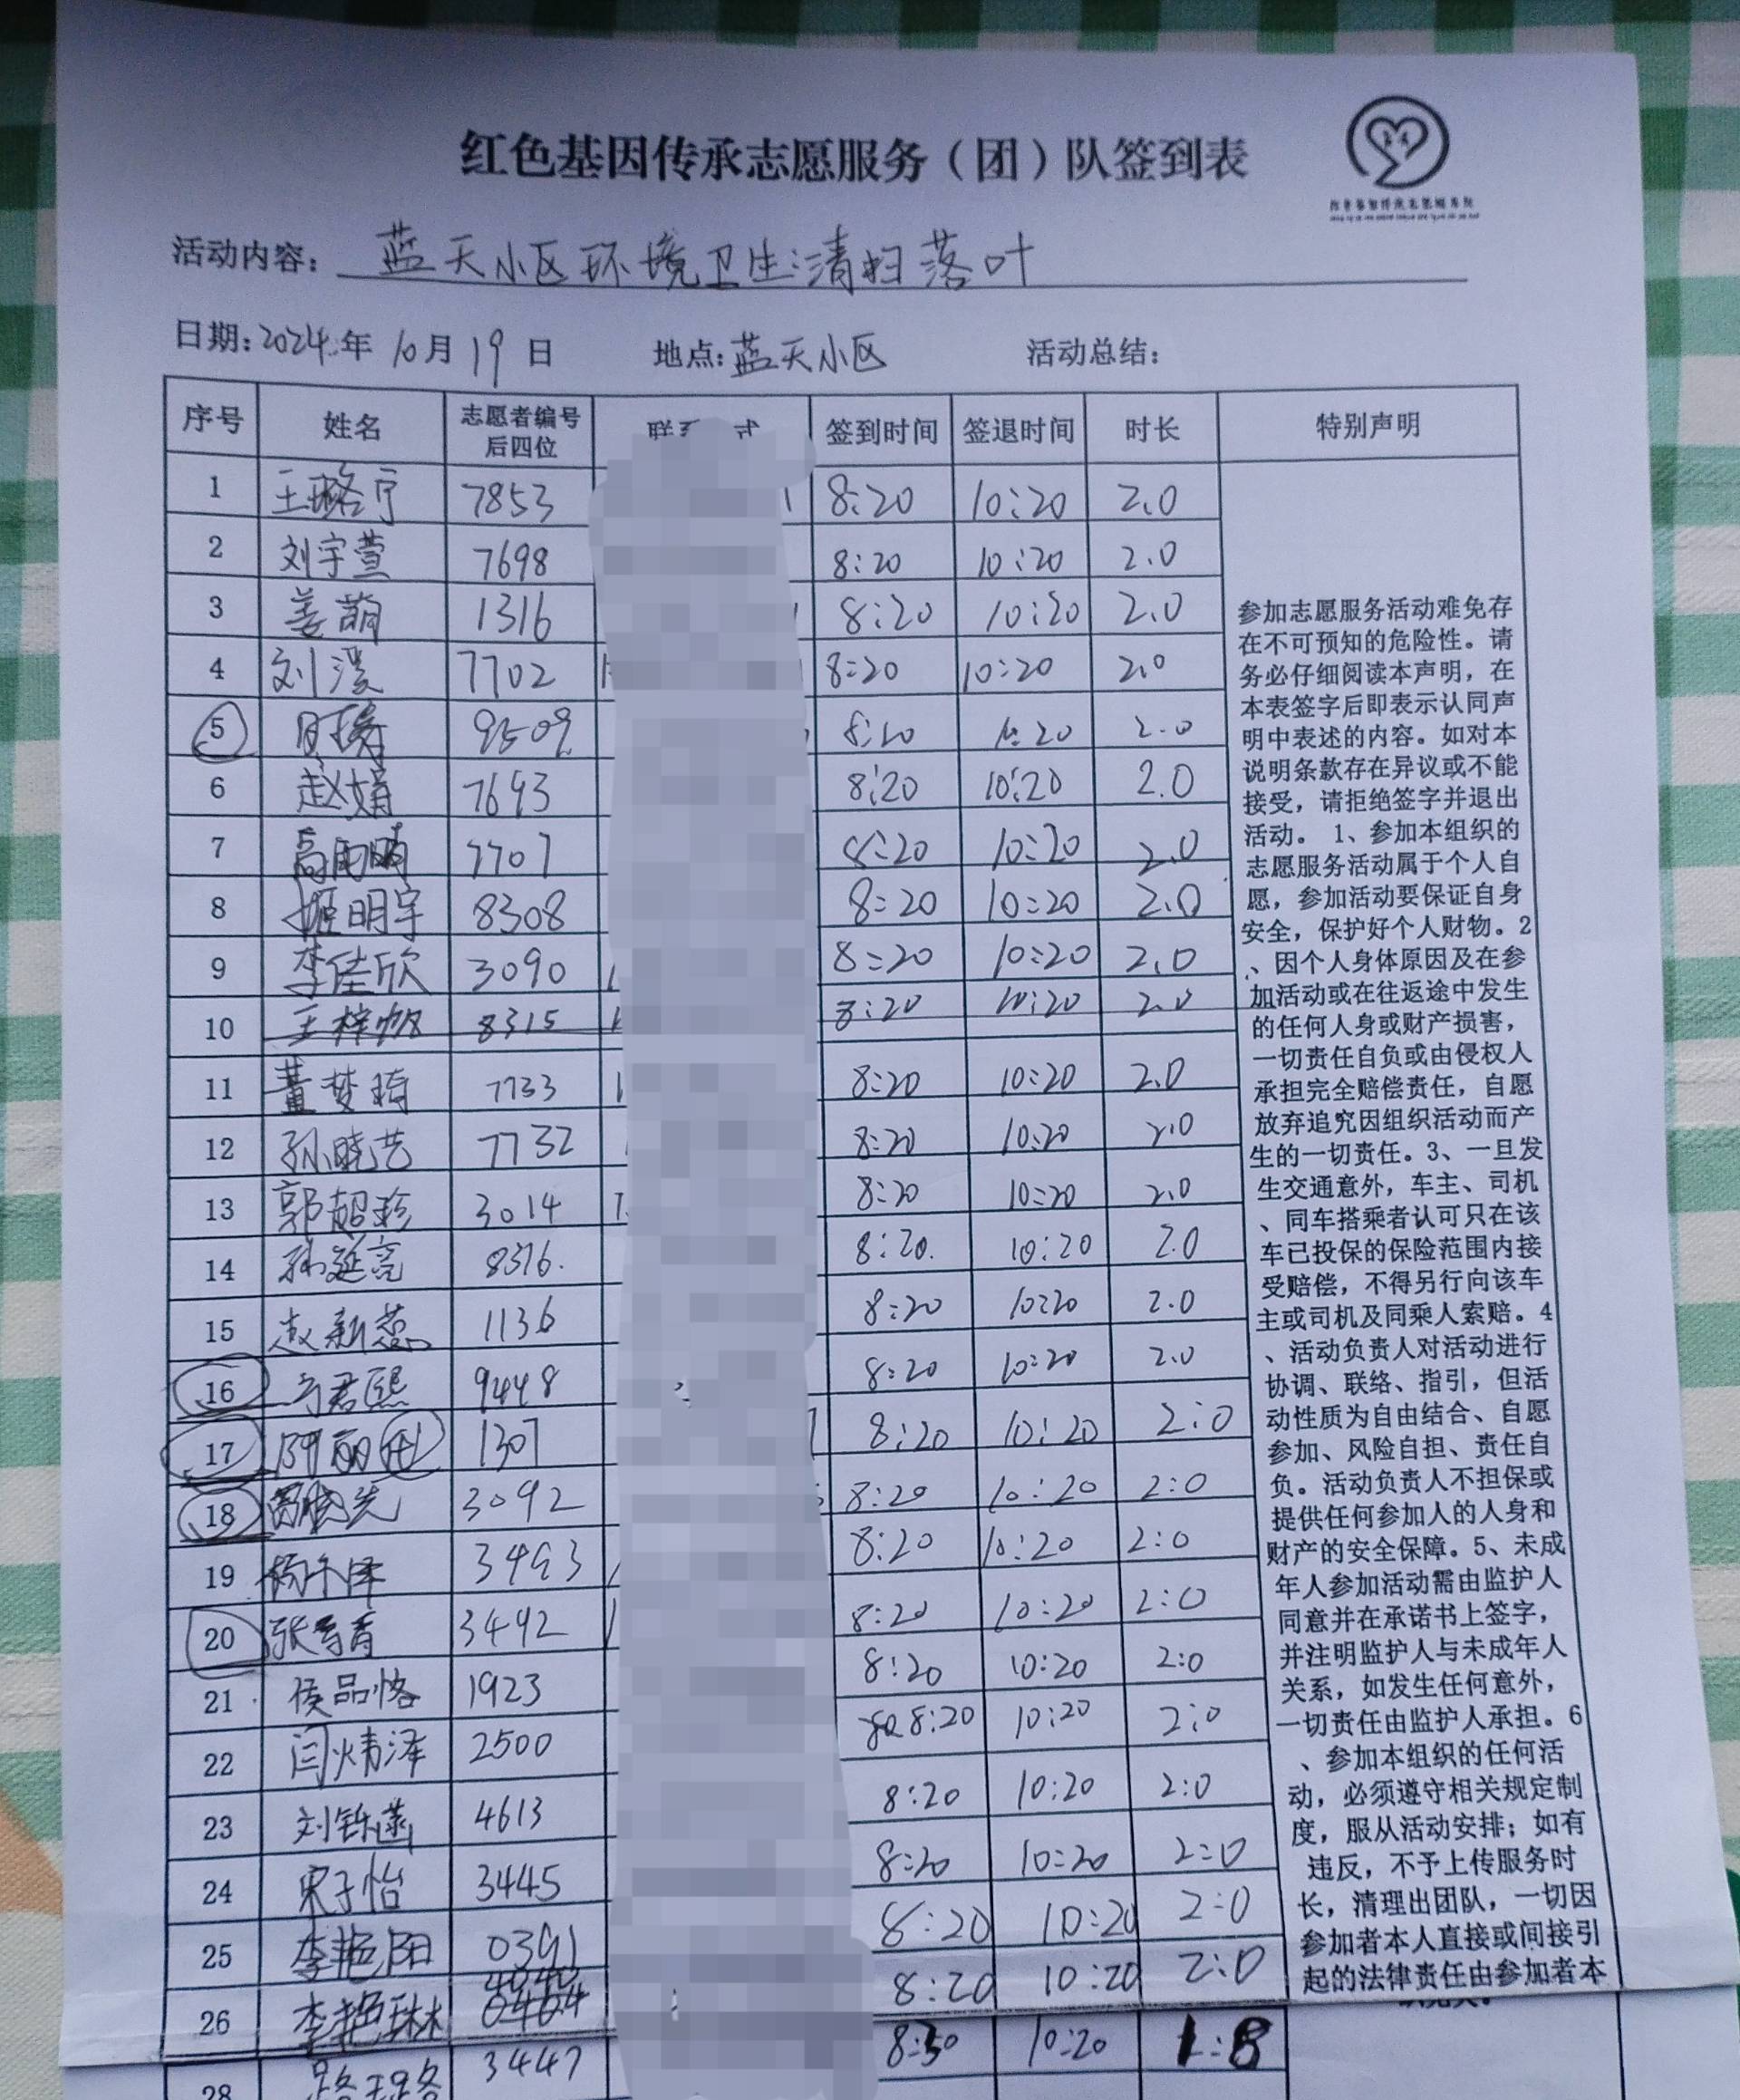 红色基因传承志愿服务（团）队签到表
活动内容：蓝天小区环境卫生清扫落叶
日期：2024年10月19日 地点：蓝天小区 活动总结：
序号 姓名 志愿者编号后四位 签到时间 签退时间 时长 特别声明
1 王璐宁 7853 8:20 10:20 2.0
2 刘宇萱 7698 8:20 10:20 2.0
3 姜萌 1316 8:20 10:20 2.0
4 刘 7702 8:20 10:20 2.0
5 9509 8:20 10:20 2.0
6 赵娟 7693 8:20 10:20 2.0
7 高雨晴 7707 8:20 10:20 2.0
8 姬明宇 8308 8:20 10:20 2.0
9 李佳欣 3090 8:20 10:20 2.0
10 王梓 8315 8:20 10:20 2.0
11 董梦琦 7733 8:20 10:20 2.0
12 孙晓艺 7732 8:20 10:20 2.0
13 郭超珍 3014 8:20 10:20 2.0
14 孙延亮 8376. 8:20. 10:20 2.0
15 赵新蕊 1136 8:20 10:20 2.0
16 君熙 9448 8:20 10:20 2.0
17 1307 8:20 10:20 2:0
18 3092 8:20 10:20 2:0
19 杨 3493 8:20 10:20 2:0
20 张 3492 8:20 10:20 2:0
21 侯品恪 1923 8:20 10:20 2:0
22 闫炜泽 2500 8:20 10:20 2:0
23 刘铄菡 4613 8:20 10:20 2:0
24 宋子怡 3445 8:20 10:20 2:0
25 李艳阳 0391 8:20 10:20 2:0
26 李艳琳 0464 8:20 10:20 2:0
28 路璐 3447 8:30 10:20 1:8
参加志愿服务活动难免存
在不可预知的危险性。请
务必仔细阅读本声明，在
本表签字后即表示认同声
明中表述的内容。如对本
说明条款存在异议或不能
接受，请拒绝签字并退出
活动。1、参加本组织的
志愿服务活动属于个人自
愿，参加活动要保证自身
安全，保护好个人财物。2
、因个人身体原因及在参
加活动或在往返途中发生
的任何人身或财产损害，
一切责任自负或由侵权人
承担完全赔偿责任，自愿
放弃追究因组织活动而产
生的一切责任。3、一旦发
生交通意外，车主、司机
、同车搭乘者认可只在该
车已投保的保险范围内接
受赔偿，不得另行向该车
主或司机及同乘人索赔。4
、活动负责人对活动进行
协调、联络、指引，但活
动性质为自由结合、自愿
参加、风险自担、责任自
负。活动负责人不担保或
提供任何参加人的人身和
财产的安全保障。5、未成
年人参加活动需由监护人
同意并在承诺书上签字，
并注明监护人与未成年人
关系，如发生任何意外，
一切责任由监护人承担。6
、参加本组织的任何活
动，必须遵守相关规定制
度，服从活动安排；如有
违反，不予上传服务时
长，清理出团队，一切因
参加者本人直接或间接引
起的法律责任由参加者本